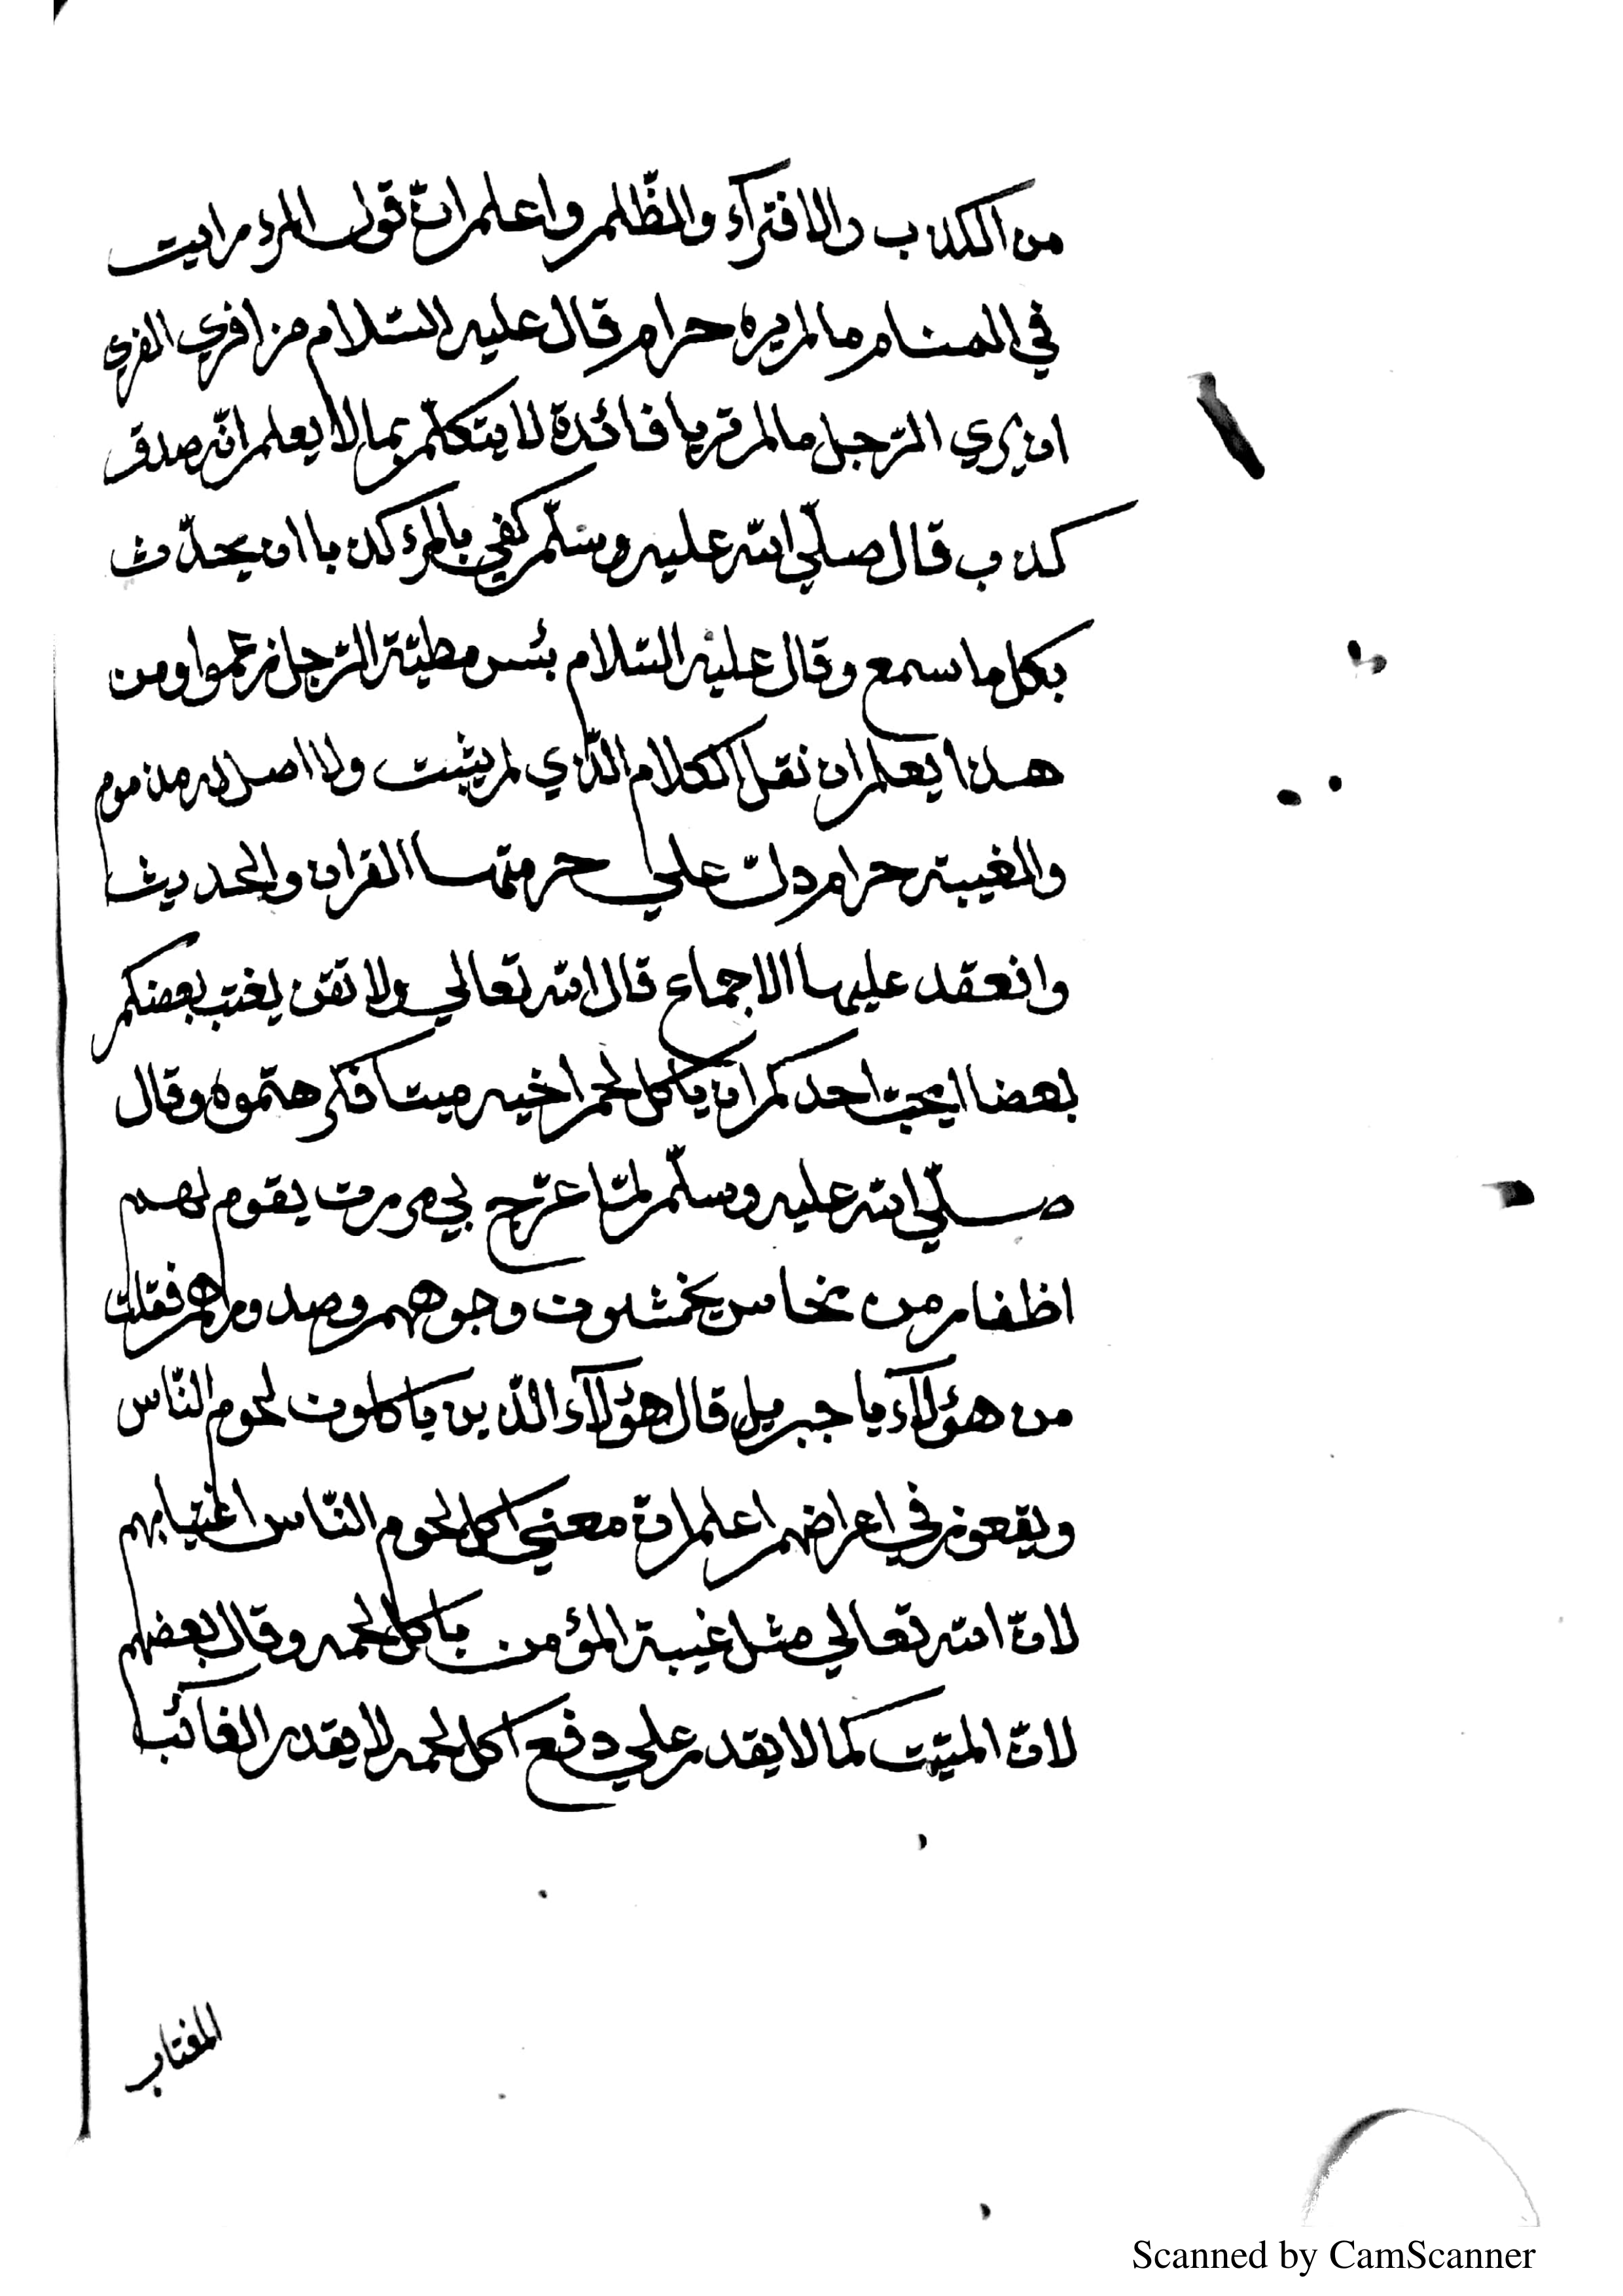 من الكذب والافترآء والظّلم واعلم انّ قول المرء رايت
في المنام ما لم يره حرام قال عليه السّلام من افري الفري
ان يري الرّجل ما لم تريا فائدة لا يتكلّم بما لا يعلم انّه صدق
كذب قال صلّي الله عليه وسلّم كفي بالمرء كذبا ان يحدّث
بكل ما سمع وقال عليه السّلام بئس مطيّة الرّجل زعموا ومن
هذا يعلم ان نقل الكلام الّذي لم يثبت ولا اصل له مذموم
والغيبة حرام دلّ علي حرمتها القران والحديث
وانعقد عليها الاجماع قال الله تعالي ولا يغتب بعضكم
بعضا ايحبّ احدكم ان ياكل لحم اخيه ميتا فكرهتموه وقال
صلّي الله عليه وسلّم لمّا عرّج بي مررت بقوم لهم
اظفار من نحاس يخمشون وجوههم وصدورهم فقلت
من هؤلآء يا جبريل قال هؤلآء الّذين ياكلون لحوم النّاس
ويقعون في اعراضهم اعلم انّ معني اكل لحوم النّاس اغتيابهم
لانّ الله تعالي مثل غيبة المؤمن باكل لحمه وقال بعضهم
لانّ الميّت كما لا يقدر علي دفع اكل لحمه لا يقدر الغائب
المغتاب
Scanned by CamScanner